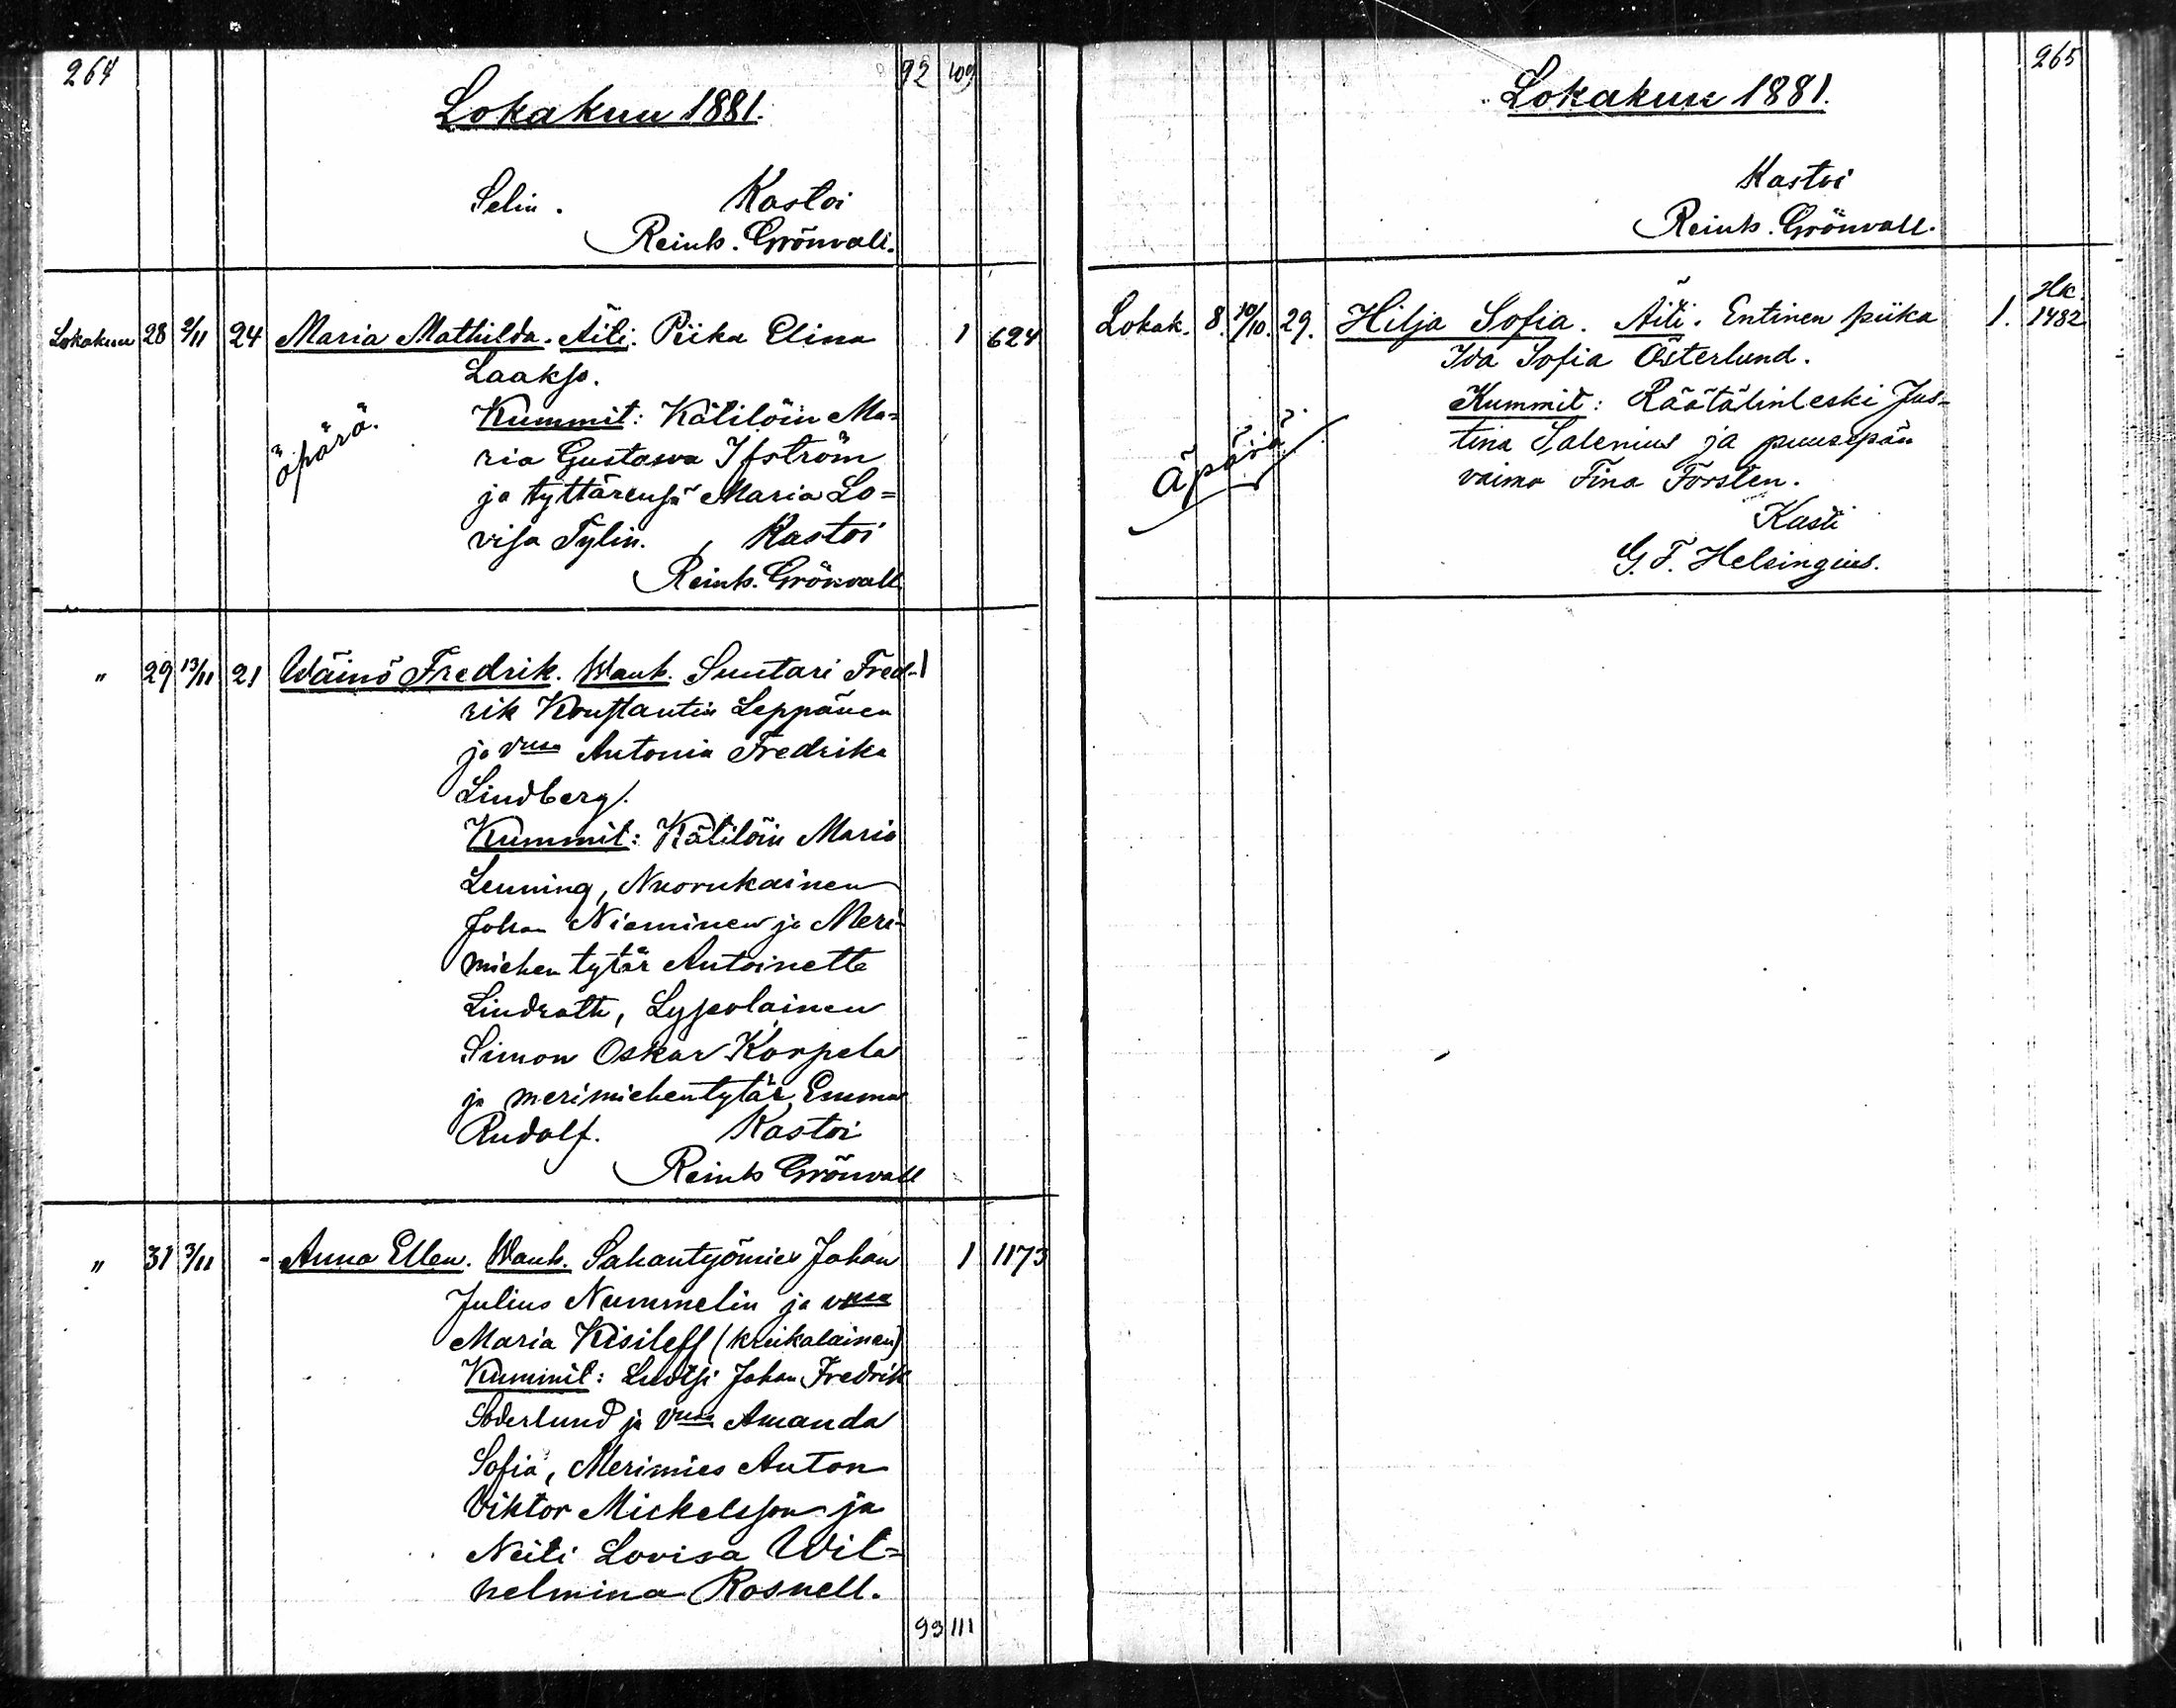 264 92 109
Lokakuu 1881.
Selin. Kastoi
Reinh. Grönvall.
Lokakuu 28 2/11 24 Maria Mathilda. Äiti: Piika Elina 1 624
Laakso.
äpärä. Kummit: Kätilöin Ma=
ria Gustava Ifström
ja tyttärensä Maria Lo=
visa Tylin. Kastoi
Reinh. Grönvall
" 29 13/11 21 Wäinö Fredrik. Wanh. Suutari Fred- 1
rik Konstantin Leppänen
ja vmsa Antonia Fredrika
Lindberg.
Kummit: Kätilöin Maria
Leuning, Nuorukainen
Johan Nieminen ja Meri-
miehen tytär Antoinette
Lindroth, Lyseolainen
Simon Oskar Korpela
ja merimiehentytär Emma
Rudolf. Kastoi
Reinh Grönvall
" 31 3/11 - Anna Ellen. Wanh. Sahantyömies Johan 1 1173
Julius Nummelin ja vmsa
Maria Kisileff (kreikalainen)
Kummit: Luotsi Johan Fredrik
Söderlund ja vmsa Amanda
Sofia, Merimies Anton
Viktor Mickelsson ja
Neiti Lovisa Wil=
helmina Rosnell.
93 111
265
Lokakuu 1881.
Kastoi
Reinh. Grönvall.
Lokak. 8. 10/10. 29. Hilja Sofia. Äiti. Entinen piika 1. Hk. 1482
Ida Sofia Österlund.
Kummit: Räätälinleski Jus-
äpärä. tina Salenius ja puusepän
vaimo Fina Forsten.
Kasti
G. F. Helsingius.